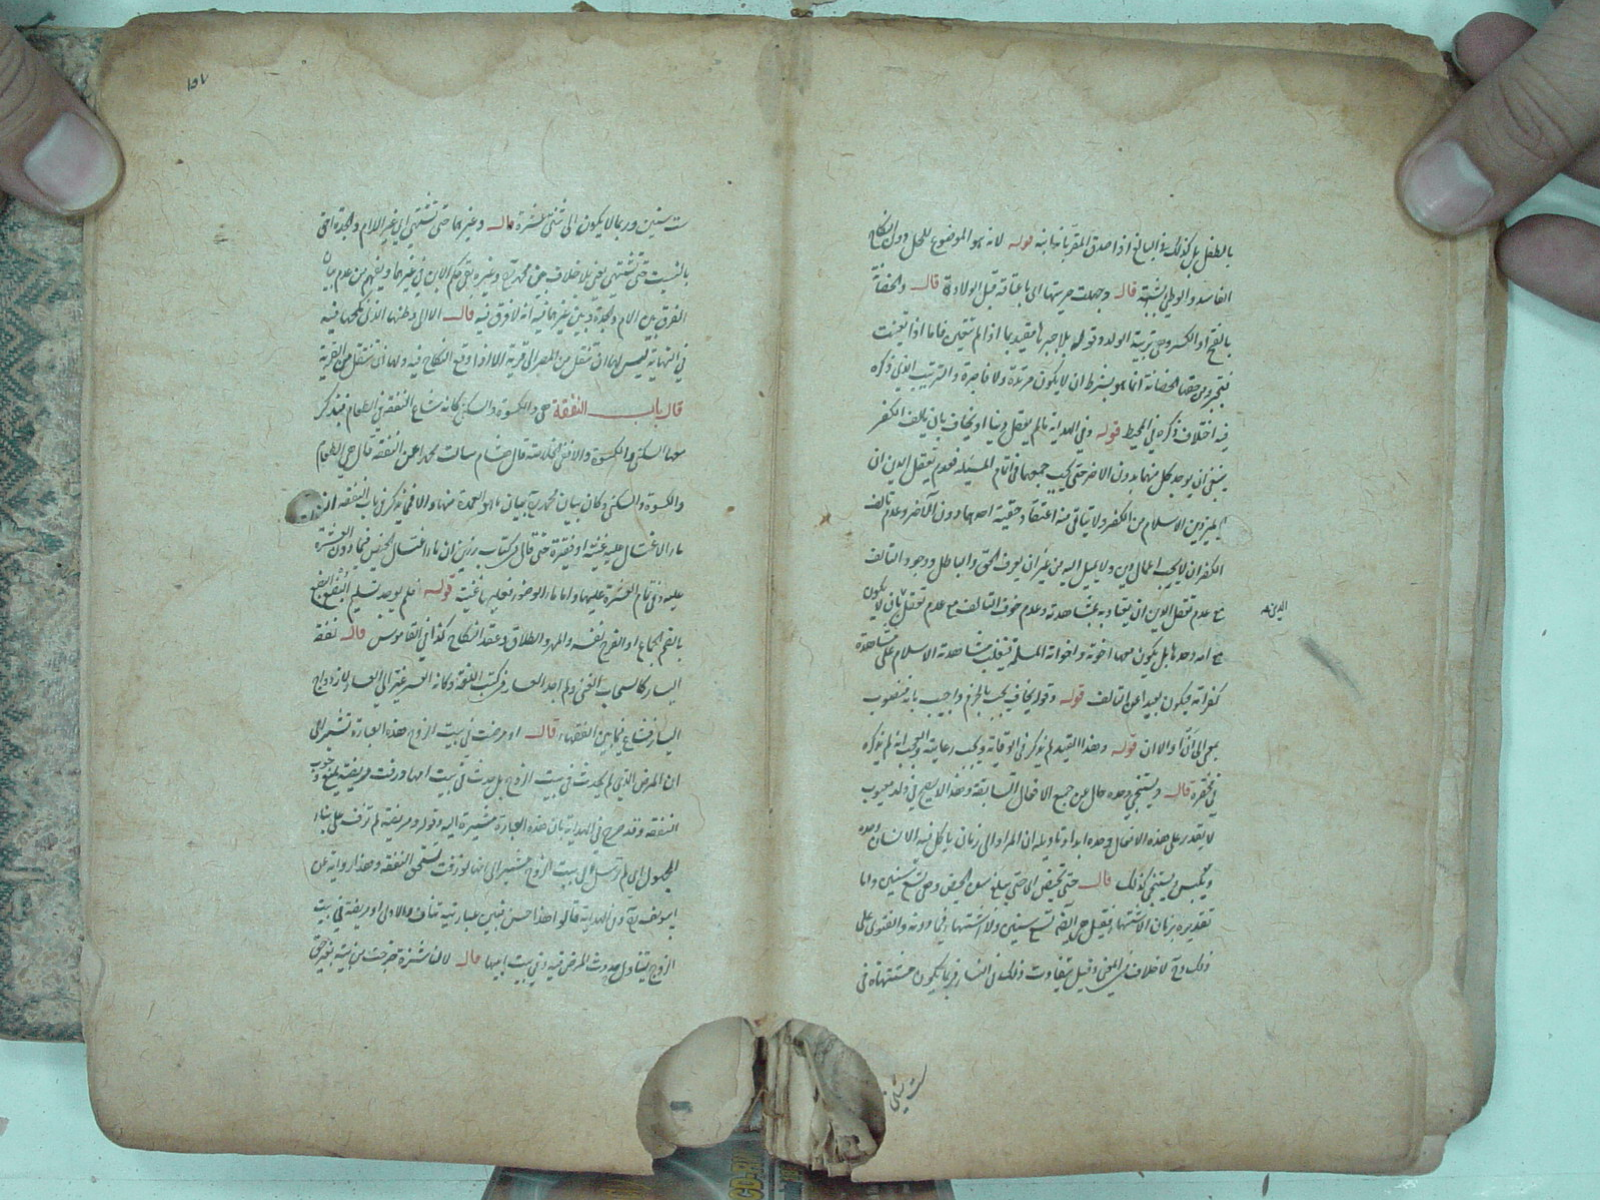 بالطفل بل كذلك في البالغ اذا صدق المقر بانه ابنه قوله لانه هو الموضوع للحل دون النكاح
الفاسد والوطئ بشبهة قال وجهلت حريتها اى باعتاقه قبل الولادة قال والحضانة
بالفتح او الكسر وهى تربية الولد وقوله بلا جبرها مقيد بما اذا لم تتعين فاما اذا تعينت
فتجبر وحق الحضانة انما هو بشرط ان لا يكون مرتدة ولا فاجرة والترتيب الذي ذكره
فيه اختلاف ذكره في المحيط قوله وفى الهداية مالم يعقل دينا او يخاف بان يالف الكفر
ينبغى ان يوجد كل منهما بدون الاخر حتى يجب جمعهما فى اتمام المسئلة فعدم تعقل الدين ان
لا يميز دين الاسلام من الكفر ولا يتاتى منه اعتقاد حقية احدهما دون الآخر وعدم تالف
الكفر ان لا يجب اعمال دين ولا يميل اليه من غير ان يعرف الحق والباطل ووجود التالف
مع عدم تعقل الدين ان يعتاد به بمشاهدته وعدم خوف التالف مع عدم تعقل بان لا يكون
الدين
مع امه وحدها بل يكون معها اخوته واخواته المسلمة فتغلب مشاهدة الاسلام على مشاهدة
كفر امه فيكون بعيدا عن التالف قوله وقوله يخاف يجب بالجزم واجيب بانه منصوب
بمعى الى ان او الا ان قوله وهذا القيد لم يذكر فى الوقاية ويجب رعايته والعجب انه لم يذكره
فى مختصره قال ويستنجى وحده حال عن جميع الافعال السابقة وهذا لا يصح فى ولد معيوب
لا يقدر على هذه الافعال وحده ابدا وتاويله ان المراد الى زمان ياكل فيه الانسان وحده
ويلبس ويستنجى كذلك قال حتى تحيض اى حتى يبلغ سن الحيض وهى تسع سنين واما
تقديره بزمان الاشتهاء فقيل هى ايضا تسع سنين ولا اشتهاء فيما دونه والفتوى على
ذلك وح لا خلاف فى المعنى وقيل يتفاوت ذلك فى النساء فربما يكون مشتهاة فى
ست سنين
١٥٧
ست سنين وربما لا يكون الى ثنتى عشرة قال وغيرهما حتى تشتهى اى غير الام والجدة احق
بالبنت حتى تشتهى يعنى بلا خلاف بين محمد رح وغيره بقى حكم الابن فى غيرهما ويفهم من عدم بيان
الفرق بين الام والجدة وبين غيرهما فيه انه لا فرق فيه قال الا الى وطنها الذى نكحها فيه
فى النهاية ليس لها ان تنتقل من المصر الى قرية الا اذا وقع النكاح فيه ولها ان تنتقل من القرية
قال باب النفقة هى والكسوة والسكنى كانه شاع النفقة فى الطعام فيذكر
معها السكنى والكسوة والا ففى الخلاصة قال هشام سالت محمدا عن النفقة قال هى الطعام
والكسوة والسكنى وكان بيان محمد رح بيان ما هو العمدة منها والا فمما يذكر فى باب النفقة ان
ماء الاغتسال عليه غنية او فقيرة حتى قال فى كتاب رزين ان ماء اغتسال الحيض فيما دون العشرة
عليه وفى تمام العشرة عليها واما ماء الوضوء فعليها غنية قوله فلم يوجد تسليم البضع البضع
بالضم الجماع او الفرج نفسه والمهر والطلاق وعقد النكاح كذا فى القاموس قال نفقة
اليسار كالسحاب الغنى ولم اجد العسار فى كتب اللغة وكانه العسر غير الى العسار لازدواج
اليسار فشاع فيما بين الفقهاء قال او مرضت فى بيت الزوج هذه العبارة تشير الى
ان المرض الذي لم يحدث فى بيت الزوج بل حدث فى بيت ابيها وزفت مريضة يمنع وجوب
النفقة وقد صرح فى الهداية بان هذه العبارة مشيرة اليه وقوله ومريضة لم تزف على بناء
المجهول اى لم ترسل الى بيت الزوج مشير الى انها لو زفت تستحق النفقة وهذا رواية عن
ابى يوسف رح وفى الهداية قالوا هذا حسن فبين عبارتيه تناف والاولى او مريضة فى بيت
الزوج يتناول حدوث المرض فيه وفى بيت ابيها قال لا ناشزة خرجت من بيته بغير حق